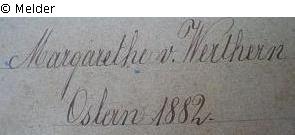 © Melder
Margarethe v. Werthern
Ostern 1882.